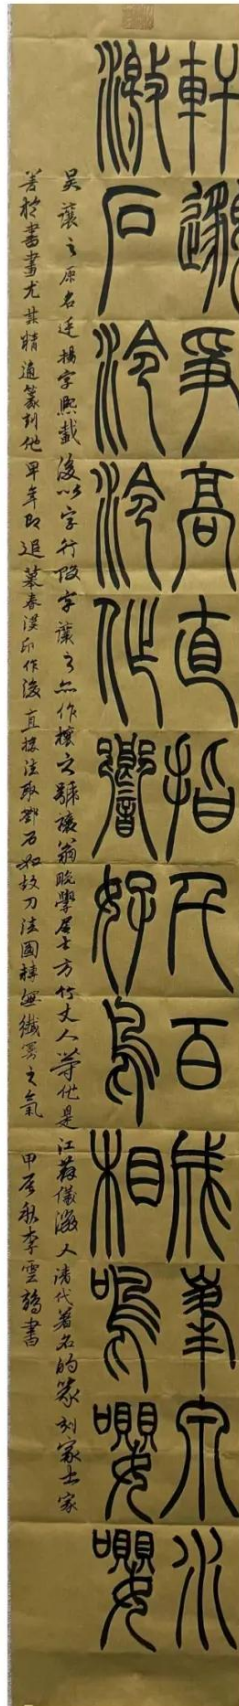 軒邈爭高直指千百成峯泉水
激石泠泠作響好鳥相鳴嚶嚶
吳讓之原名廷揚字熙載後以字行改字讓之亦作攘之號讓翁晚學居士方竹丈人等他是江蘇儀徵人清代著名的篆刻家士家
善於書畫尤其精通篆刻他早年即追摹秦漢印作後直接法取鄧石如故刀法圓轉無纖冥之氣 甲辰秋李雲鶴書